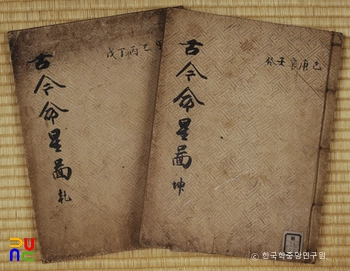 戊丁丙乙甲
古今命星圖 乾
癸壬辛庚己
古今命星圖 坤
© 한국학중앙연구원